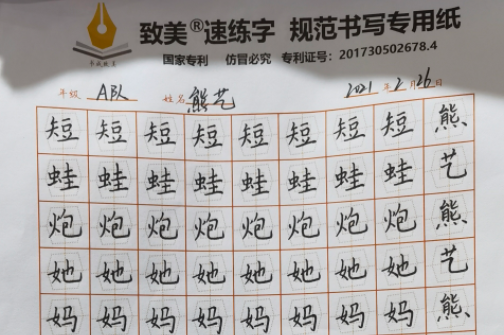 致美®速练字 规范书写专用纸
国家专利 仿冒必究 专利证号：201730502678.4
年级 A队 姓名 熊艺 2021年2月26日
短短短短短短短短熊
蛙蛙蛙蛙蛙蛙蛙蛙艺
炮炮炮炮炮炮炮炮熊
她她她她她她她她艺
妈妈妈妈妈妈妈妈熊